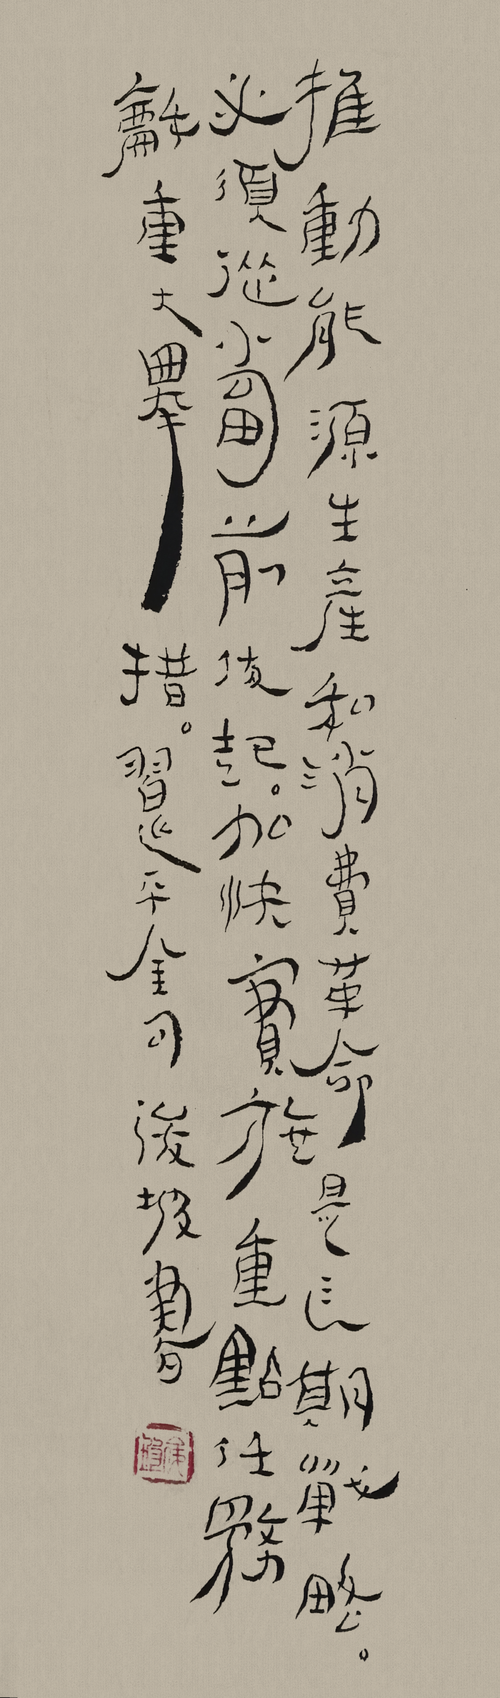 推動能源生產和消費革命是長期戰略。
必須從當前做起。加快實施重點任務
龢重大舉措。習近平金句坡書